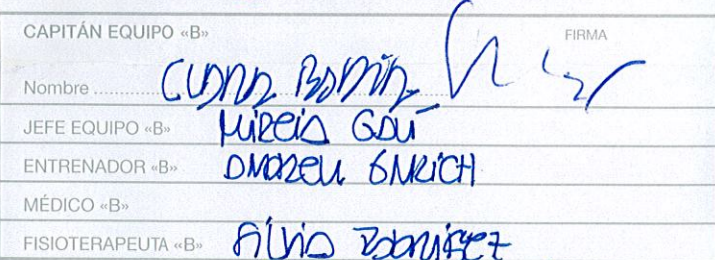 CAPITÁN EQUIPO «B» FIRMA
Nombre
JEFE EQUIPO «B» MIREIA GOU
ENTRENADOR «B» ANDREU ENRICH
MÉDICO «B»
FISIOTERAPEUTA «B» SÍLVIA RODRÍGUEZ